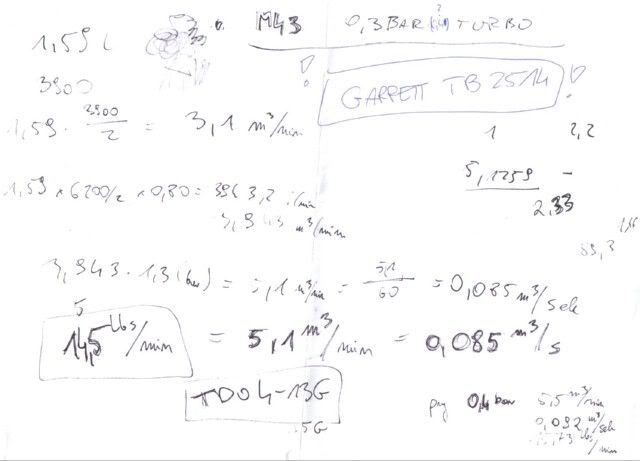 M43 0,3 BAR TURBO
1,59 L
3900
! GARRETT TB 2514 !
1,59 · 3900/2 = 3,1 m³/min
1 2,2
5,1259 -
2,33
1,59 × 6200/2 × 0,80 = 3943,2 l/min
3,943 m³/min
3,943 · 1,3 (bar) = 5,1 m³/min = 5,1/60 = 0,085 m³/sek
5
14,5 lbs/min = 5,1 m³/min = 0,085 m³/s
TD04-13G
15G
przy 0,4 bar 5,5 m³/min
0,092 m³/sek
lbs/min